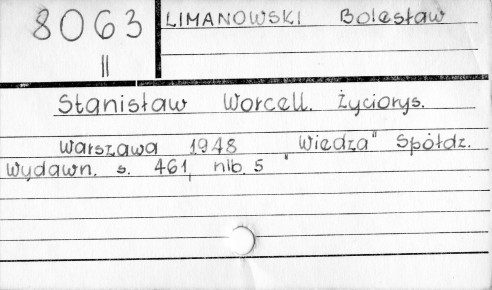 8063
II
LIMANOWSKI Bolesław
Stanisław Worcell. Życiorys.
Warszawa 1948 "Wiedza" Spółdz.
Wydawn. s. 461, nlb. 5